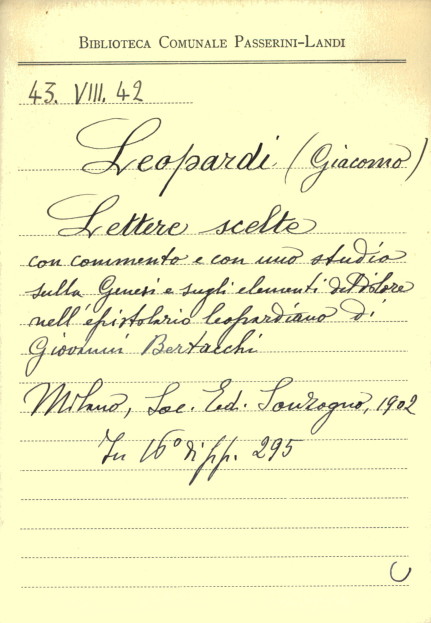 BIBLIOTECA COMUNALE PASSERINI-LANDI
43. VIII. 42
Leopardi (Giacomo)
Lettere scelte
con commento e con uno studio
sulla Genesi e sugli elementi del Dolore
nell'epistolario leopardiano di
Giovanni Bertacchi
Milano, Soc. Ed. Sonzogno, 1902
In 16° di pp. 295